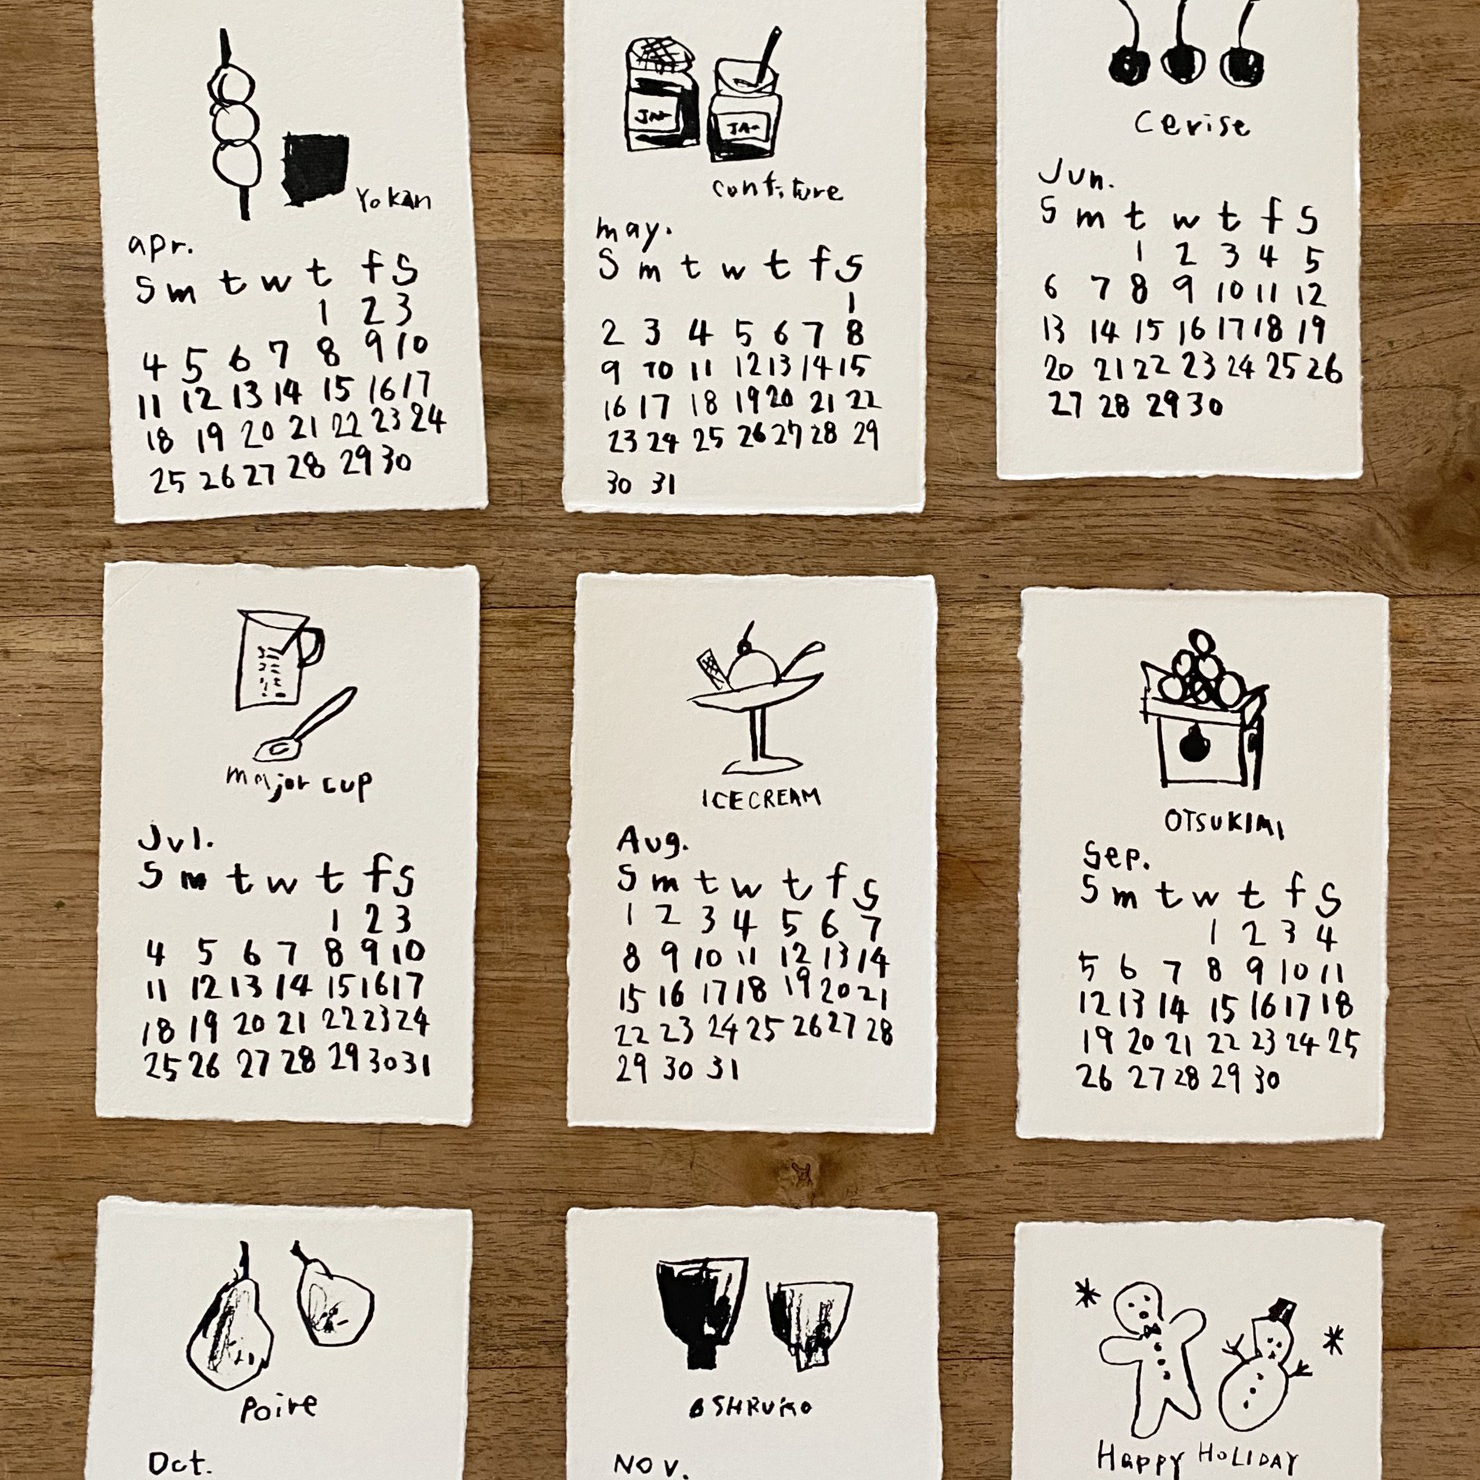 Yokan
apr.
S m t w t f S
1 2 3
4 5 6 7 8 9 10
11 12 13 14 15 16 17
18 19 20 21 22 23 24
25 26 27 28 29 30
JAM
JA-
confiture
may.
S m t w t f S
1
2 3 4 5 6 7 8
9 10 11 12 13 14 15
16 17 18 19 20 21 22
23 24 25 26 27 28 29
30 31
cerise
Jun.
S m t w t f S
1 2 3 4 5
6 7 8 9 10 11 12
13 14 15 16 17 18 19
20 21 22 23 24 25 26
27 28 29 30
major cup
Jul.
S m t w t f S
1 2 3
4 5 6 7 8 9 10
11 12 13 14 15 16 17
18 19 20 21 22 23 24
25 26 27 28 29 30 31
ICECREAM
Aug.
S m t w t f S
1 2 3 4 5 6 7
8 9 10 11 12 13 14
15 16 17 18 19 20 21
22 23 24 25 26 27 28
29 30 31
OTSUKIMI
Sep.
S m t w t f S
1 2 3 4
5 6 7 8 9 10 11
12 13 14 15 16 17 18
19 20 21 22 23 24 25
26 27 28 29 30
Poire
Oct.
OSHRUKO
NOV.
Happy HOLIDAY